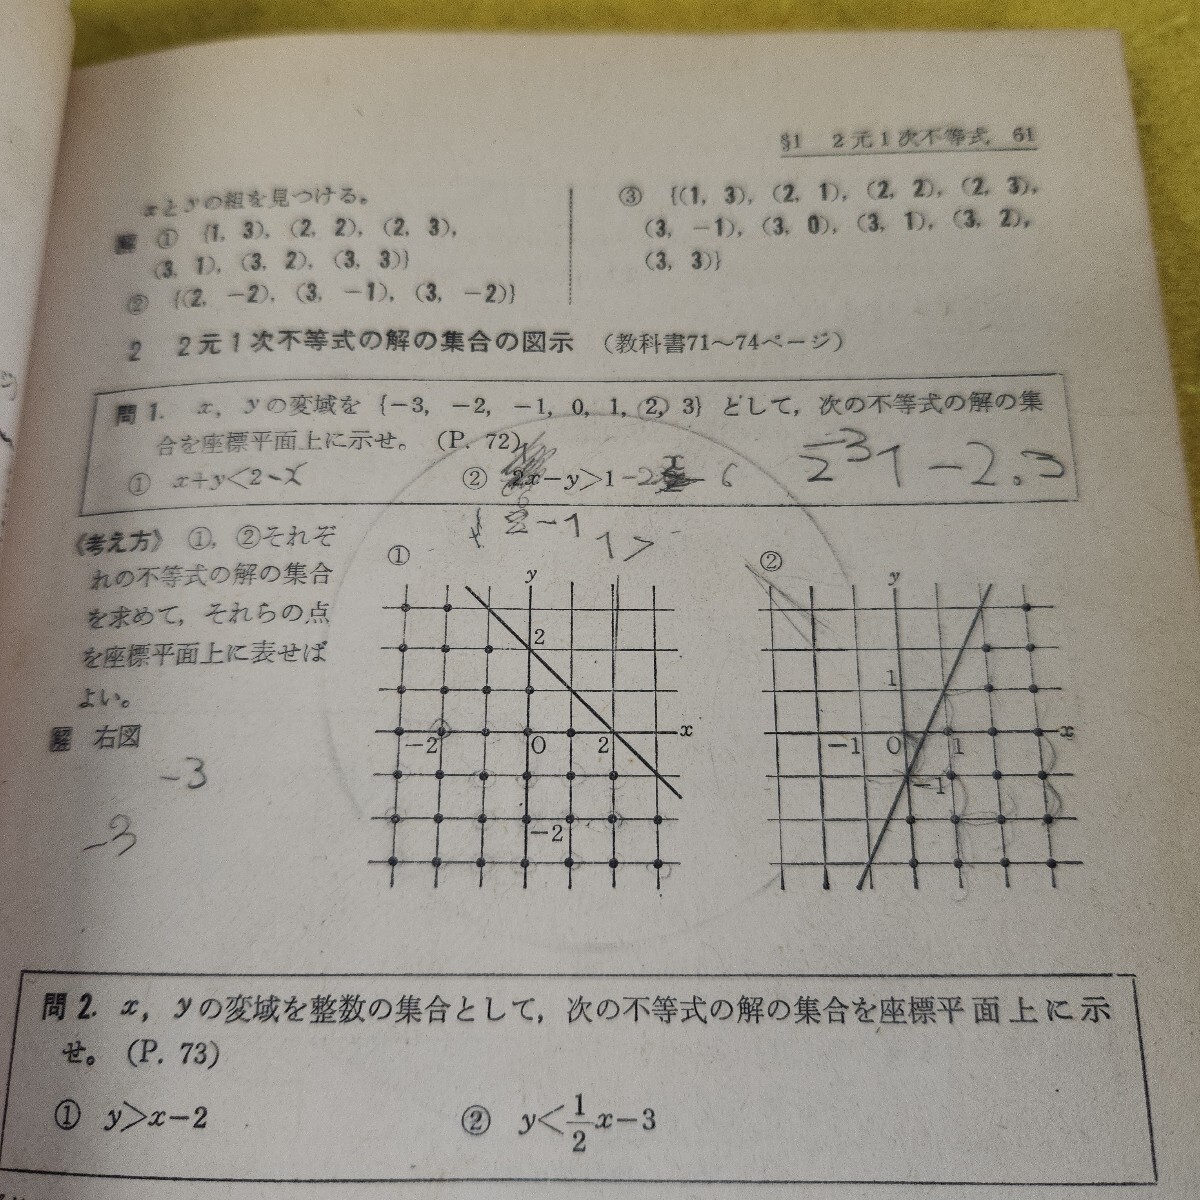 §1 2元1次不等式 61
xとyの組を見つける。
解 ① {1, 3), (2, 2), (2, 3),
(3, 1), (3, 2), (3, 3)}
② {(2, −2), (3, −1), (3, −2)}
③ {(1, 3), (2, 1), (2, 2), (2, 3),
(3, −1), (3, 0), (3, 1), (3, 2),
(3, 3)}
2 2元1次不等式の解の集合の図示 (教科書71〜74ページ)
問1. x, yの変域を {−3, −2, −1, 0, 1, 2, 3} として,次の不等式の解の集
合を座標平面上に示せ。 (P. 72)
① x+y<2-x
② 2x−y>1
《考え方》 ①, ②それぞ
れの不等式の解の集合
を求めて, それらの点
を座標平面上に表せば
よい。
解 右図
-3
-3
①
y
2
−2
O
2
x
−2
②
y
1
−1
O
1
x
−1
問2. x, yの変域を整数の集合として, 次の不等式の解の集合を座標平面上に示
せ。 (P. 73)
① y>x−2
② y<1/2x−3